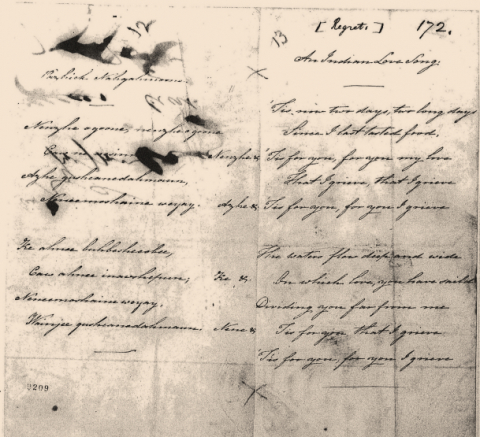 12
Pishich Nahgahmoune
Nonghe agome, nonghe agome
Nonghe &
Azhe gushawedahmaun,
Neneemoshaine weyay. Azhe &
Ke ahnee bubbesheekee,
Caw ahnee inawshepun, Ke &
Neneemoshaine weyay.
Wainjee gushawedahmaun Nene &
2209
13 [Regrets] 172.
An Indian Love Song.
Tis now two days, two long days
Since I last tasted food,
Tis for you, for you my love
That I grieve, that I grieve
Tis for you, for you I grieve
The waters flow deep and wide
On which love, you have sailed
Dividing you far from me
Tis for you that I grieve
Tis for you, for you I grieve